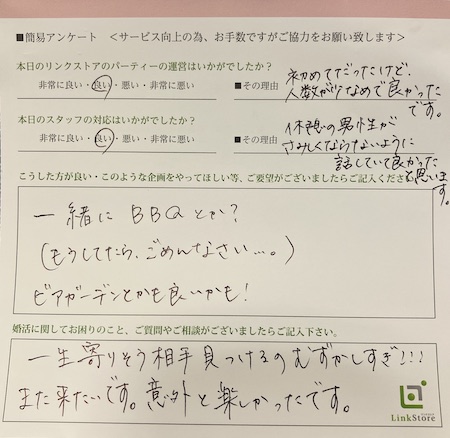 ■簡易アンケート <サービス向上の為、お手数ですがご協力をお願い致します>
本日のリンクストアのパーティーの運営はいかがでしたか?
非常に良い・良い・悪い・非常に悪い
■その理由
初めてだったけど、
人数が少なめで良かった
です。
本日のスタッフの対応はいかがでしたか?
非常に良い・良い・悪い・非常に悪い
■その理由
休憩の男性が
さみしくならないように
話していて良かった
と思いま
す。
こうした方が良い・このような企画をやってほしい等、ご要望がございましたらご記入ください
一緒にBBQとか?
(もうしてたら、ごめんなさい…。)
ビアガーデンとかも良いかも!
婚活に関してお困りのこと、ご質問やご相談がございましたらご記入下さい。
一生寄りそう相手見つけるのむずかしすぎ!!!
また来たいです。意外と楽しかったです。
LinkStore